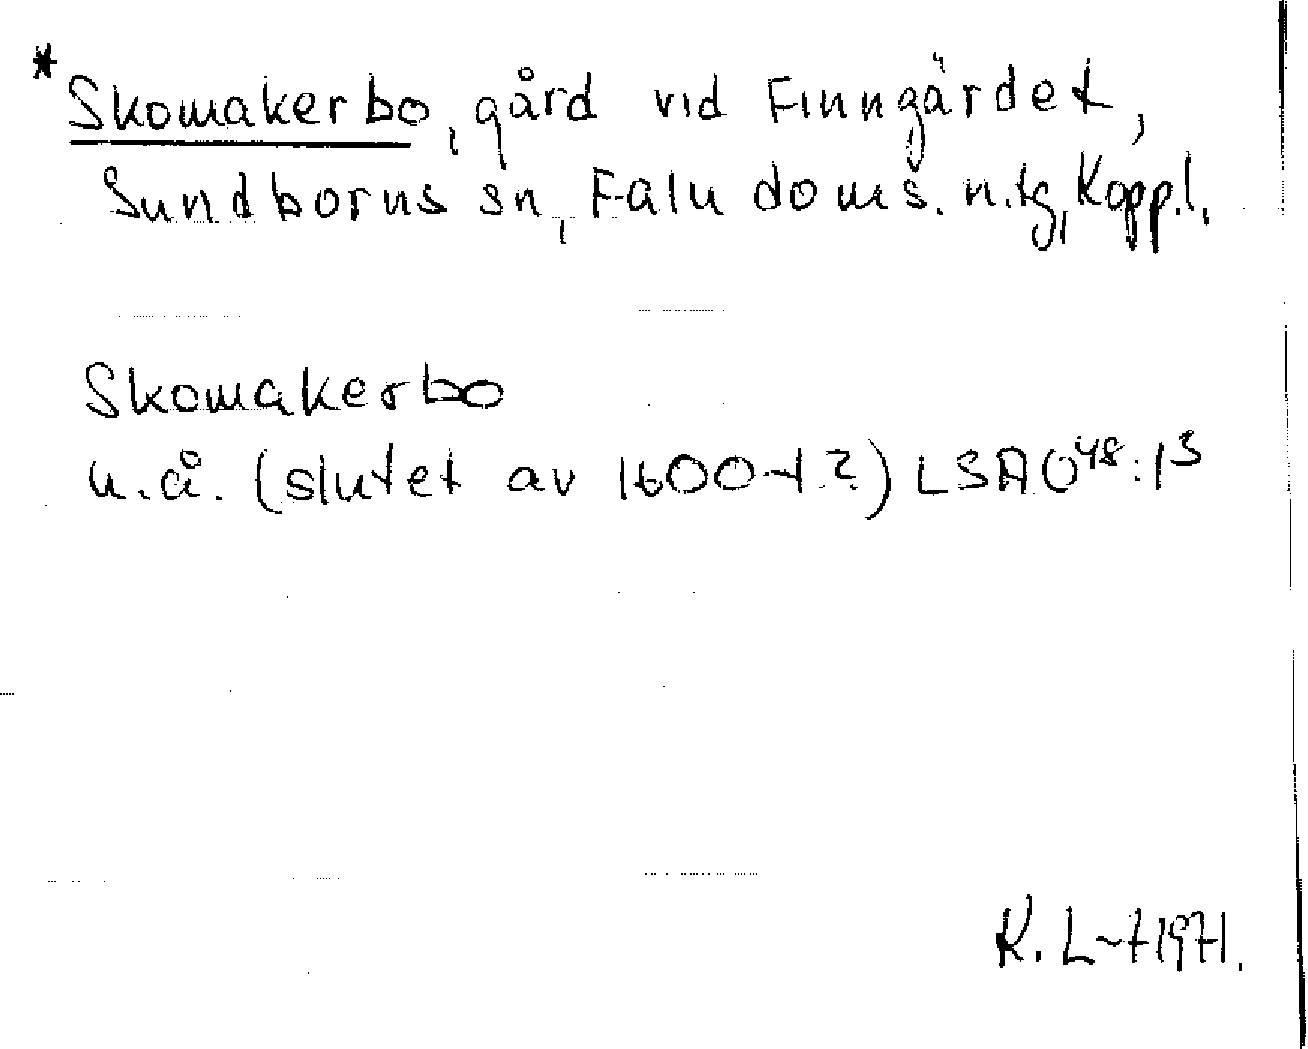 *Skomakerbo, gård vid Finngärdet,
Sundborns sn, Falu doms. n. tg, Kopp. l.
Skomakerbo
u.å. (slutet av 1600-t.?) LSA O48:13
K. L-t 1971.